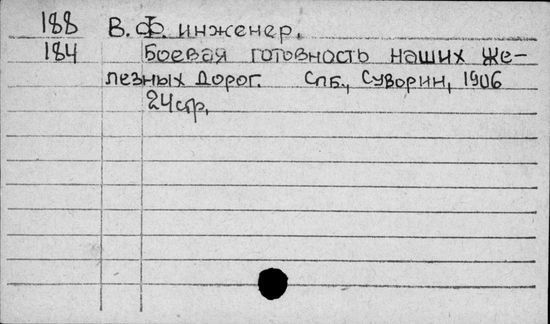 188 В. Ф. инженер.
184 Боевая готовность наших же-
лезных дорог. Спб., Суворин, 1906
24стр,